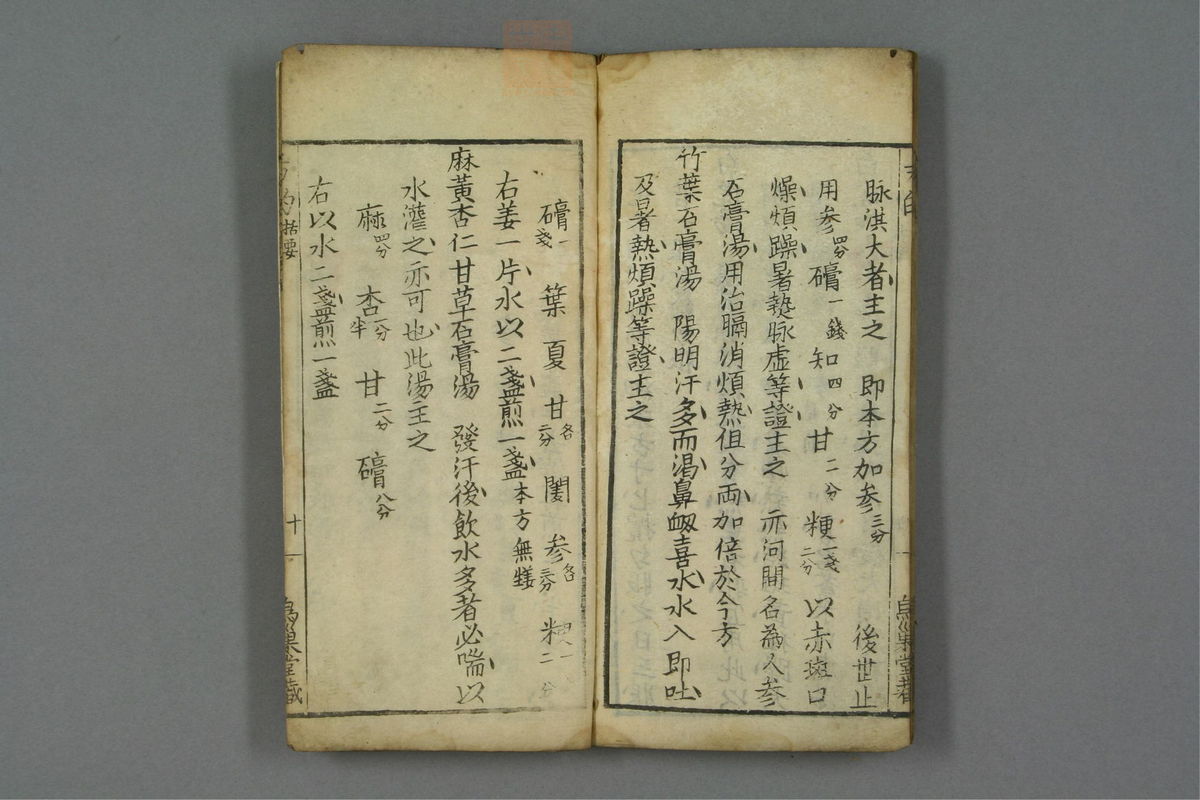 脉洪大者主之　即本方加参三分　後世止
用参四分　礵一錢　知四分　甘二分　粳一戔二分　以赤斑口
燥煩躁暑熱脉虚等證主之　亦河間名為人参
石膏湯用治膈消煩熱但分両加倍於今方
竹葉石膏湯　陽明汗多而渇鼻衂喜水水入即吐
及暑熱煩躁等證主之
一戔　葉　夏　甘各二分　参各三分　粳一　二分
右姜一片水以二盞煎一盞本方無
麻黄杏仁甘草石膏湯　發汗後飲水多者必喘以
水灌之亦可也此湯主之
麻四分　杏一分半　甘二分　八分
右以水二盞煎一盞
方的括要
十一
烏巣堂蔵